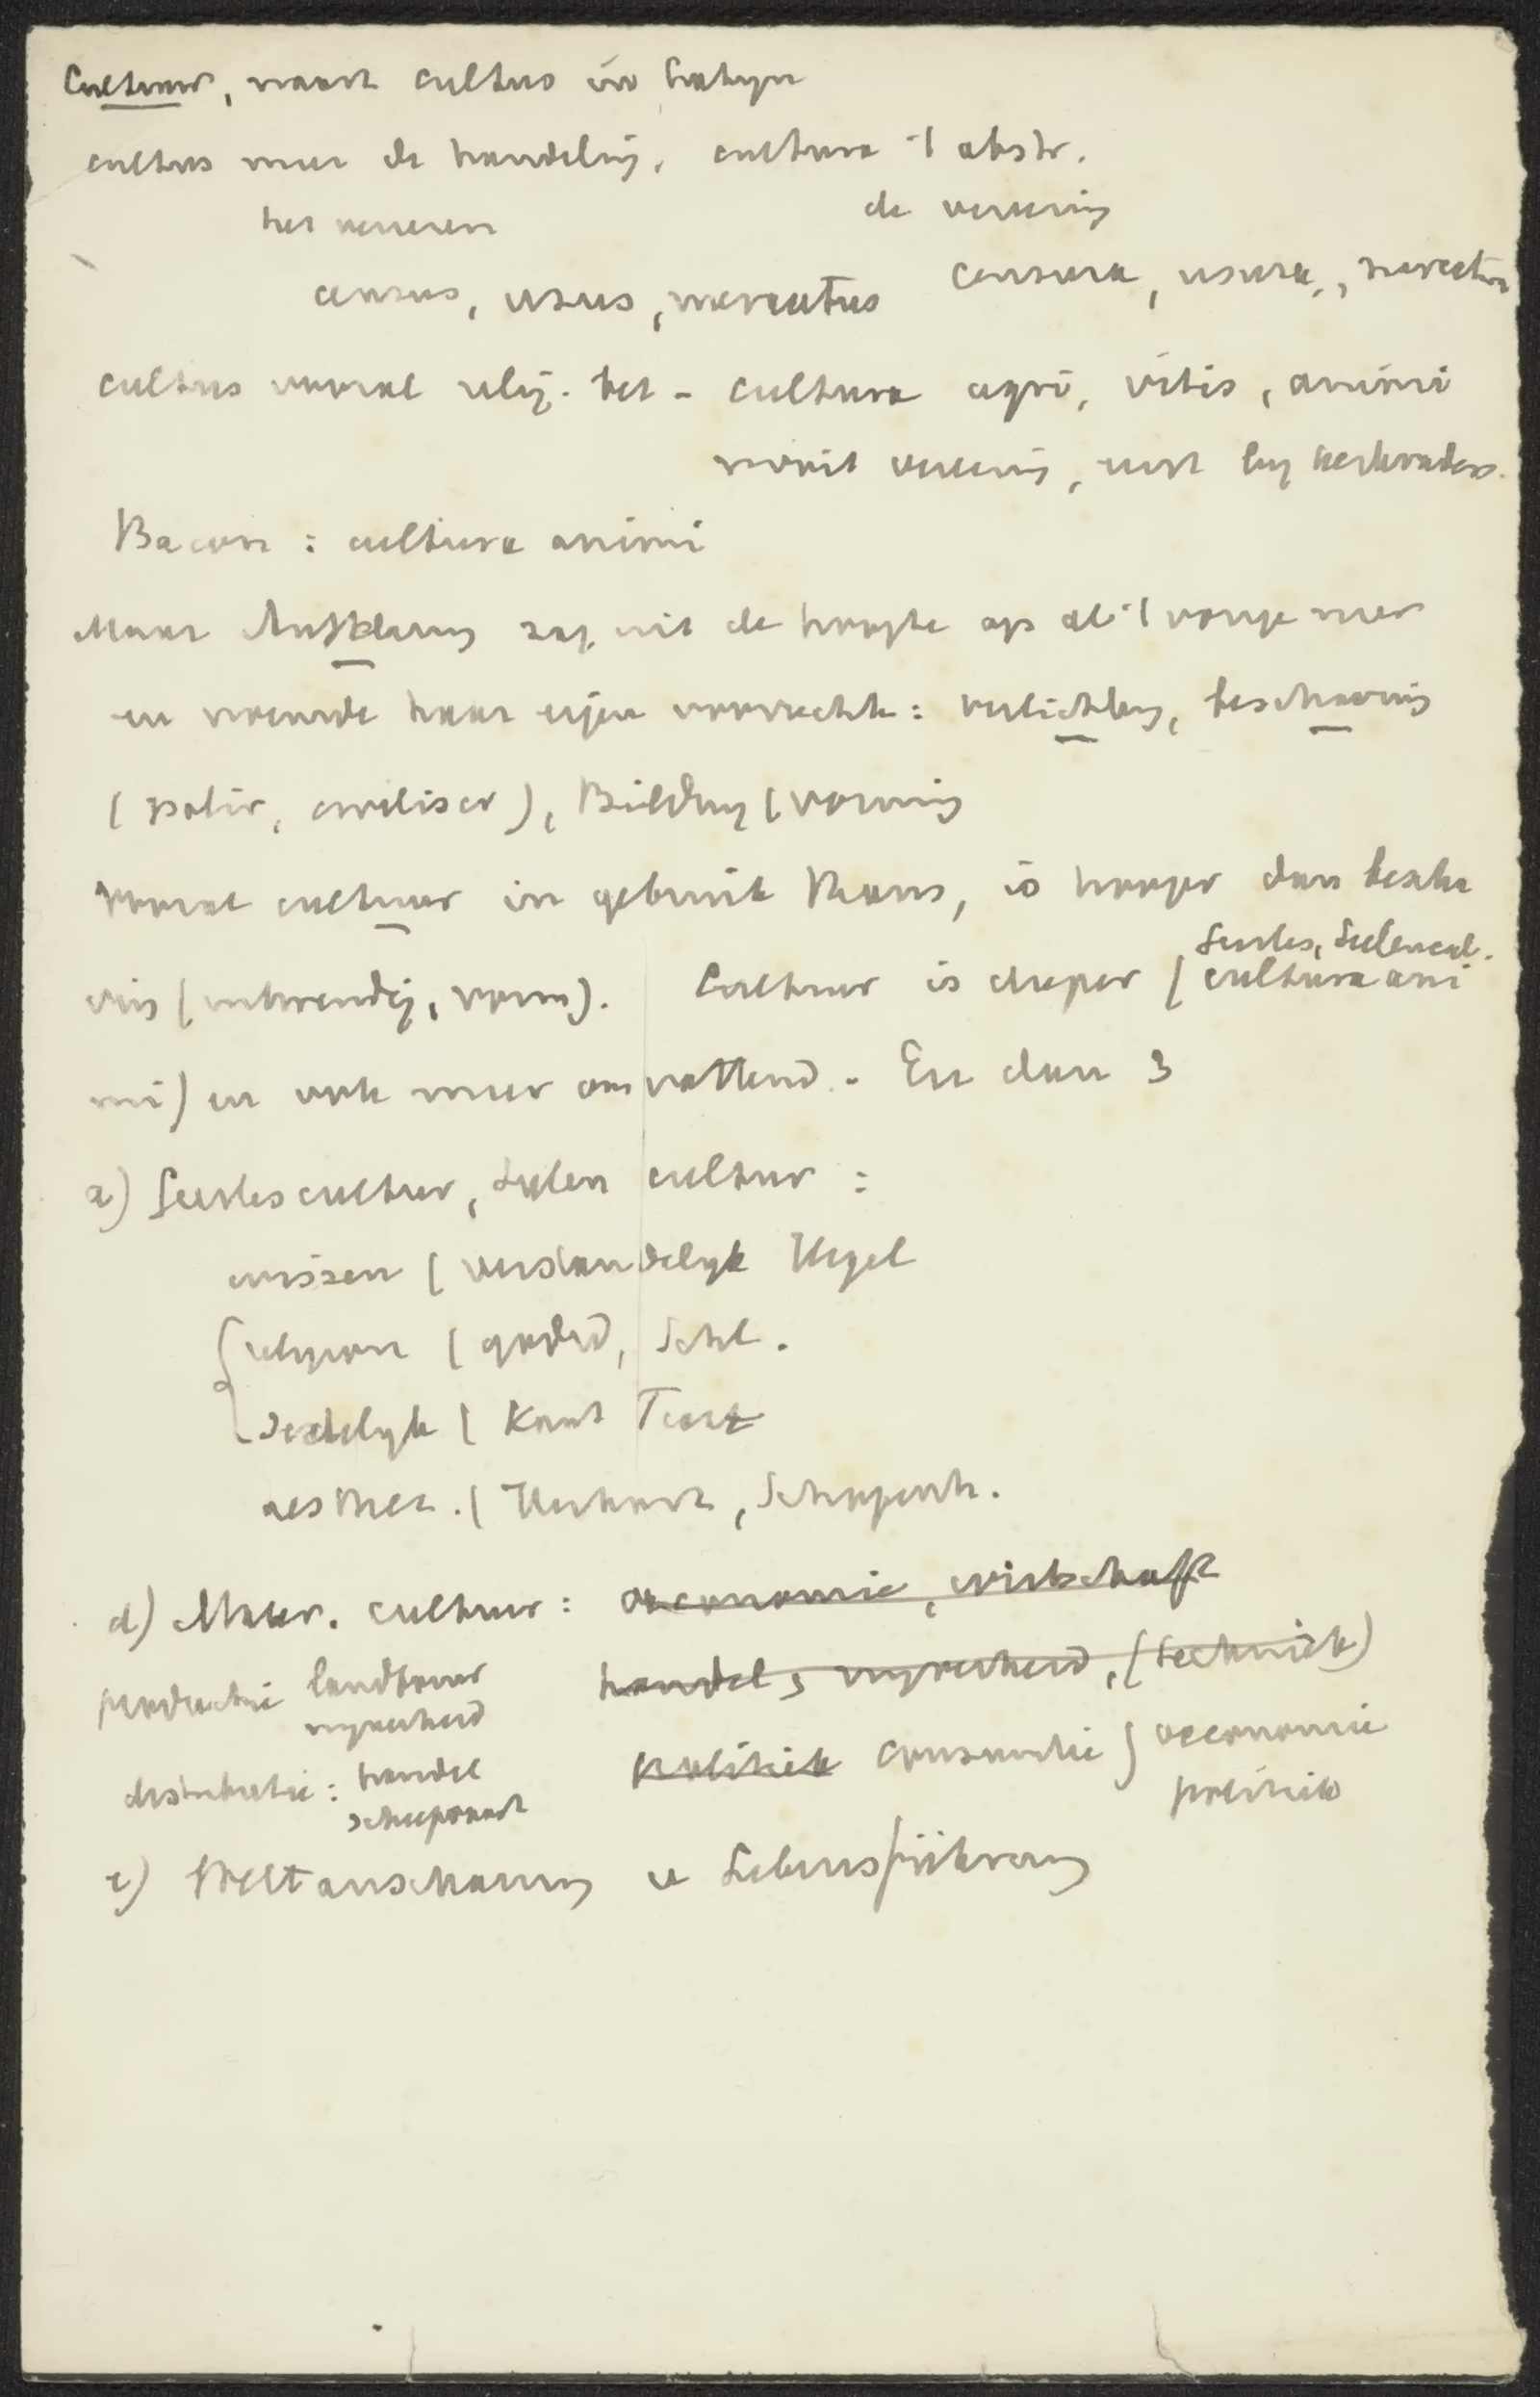 Cultuur, naast cultus in Latijn
cultus meer de handeling, cultura 't abstr.
het vereren de vereering
census, usus, mercatus censura, usura, mercatura
cultus vooral relig. bet - cultura agri, vitis, animi
nooit vereering, eerst by kerkvaders.
Bacon : cultura animi
Maar Aufklärung zag uit de hoogte op al 't vorige neer
en roemde haar eigen voorrechten : verlichting, beschaving
(polir, civiliser), Bildung (vorming
Vooral cultuur in gebruik thans, is hooger dan bescha
Geistes, Seelencul.
ving (uitwendig, vorm). Cultuur is dieper (cultura ani
mi) en ook meer omvattend. - En dan 3
a) Geistescultur, Seelen cultur :
wissen ( verstandelyk Hegel
religion ( godsd, Schl.
zedelyk ( Kant
aesthet. ( Herbart, Schopenh.
d) Mater. cultuur : oeconomie, wirtschaft
productie landbouw handel, nyverheid, (techniek)
nyverheid
politiek consumtie } oeconomie
distributie : handel politiek
scheepvaart
e) Weltanschauung u Lebensführung